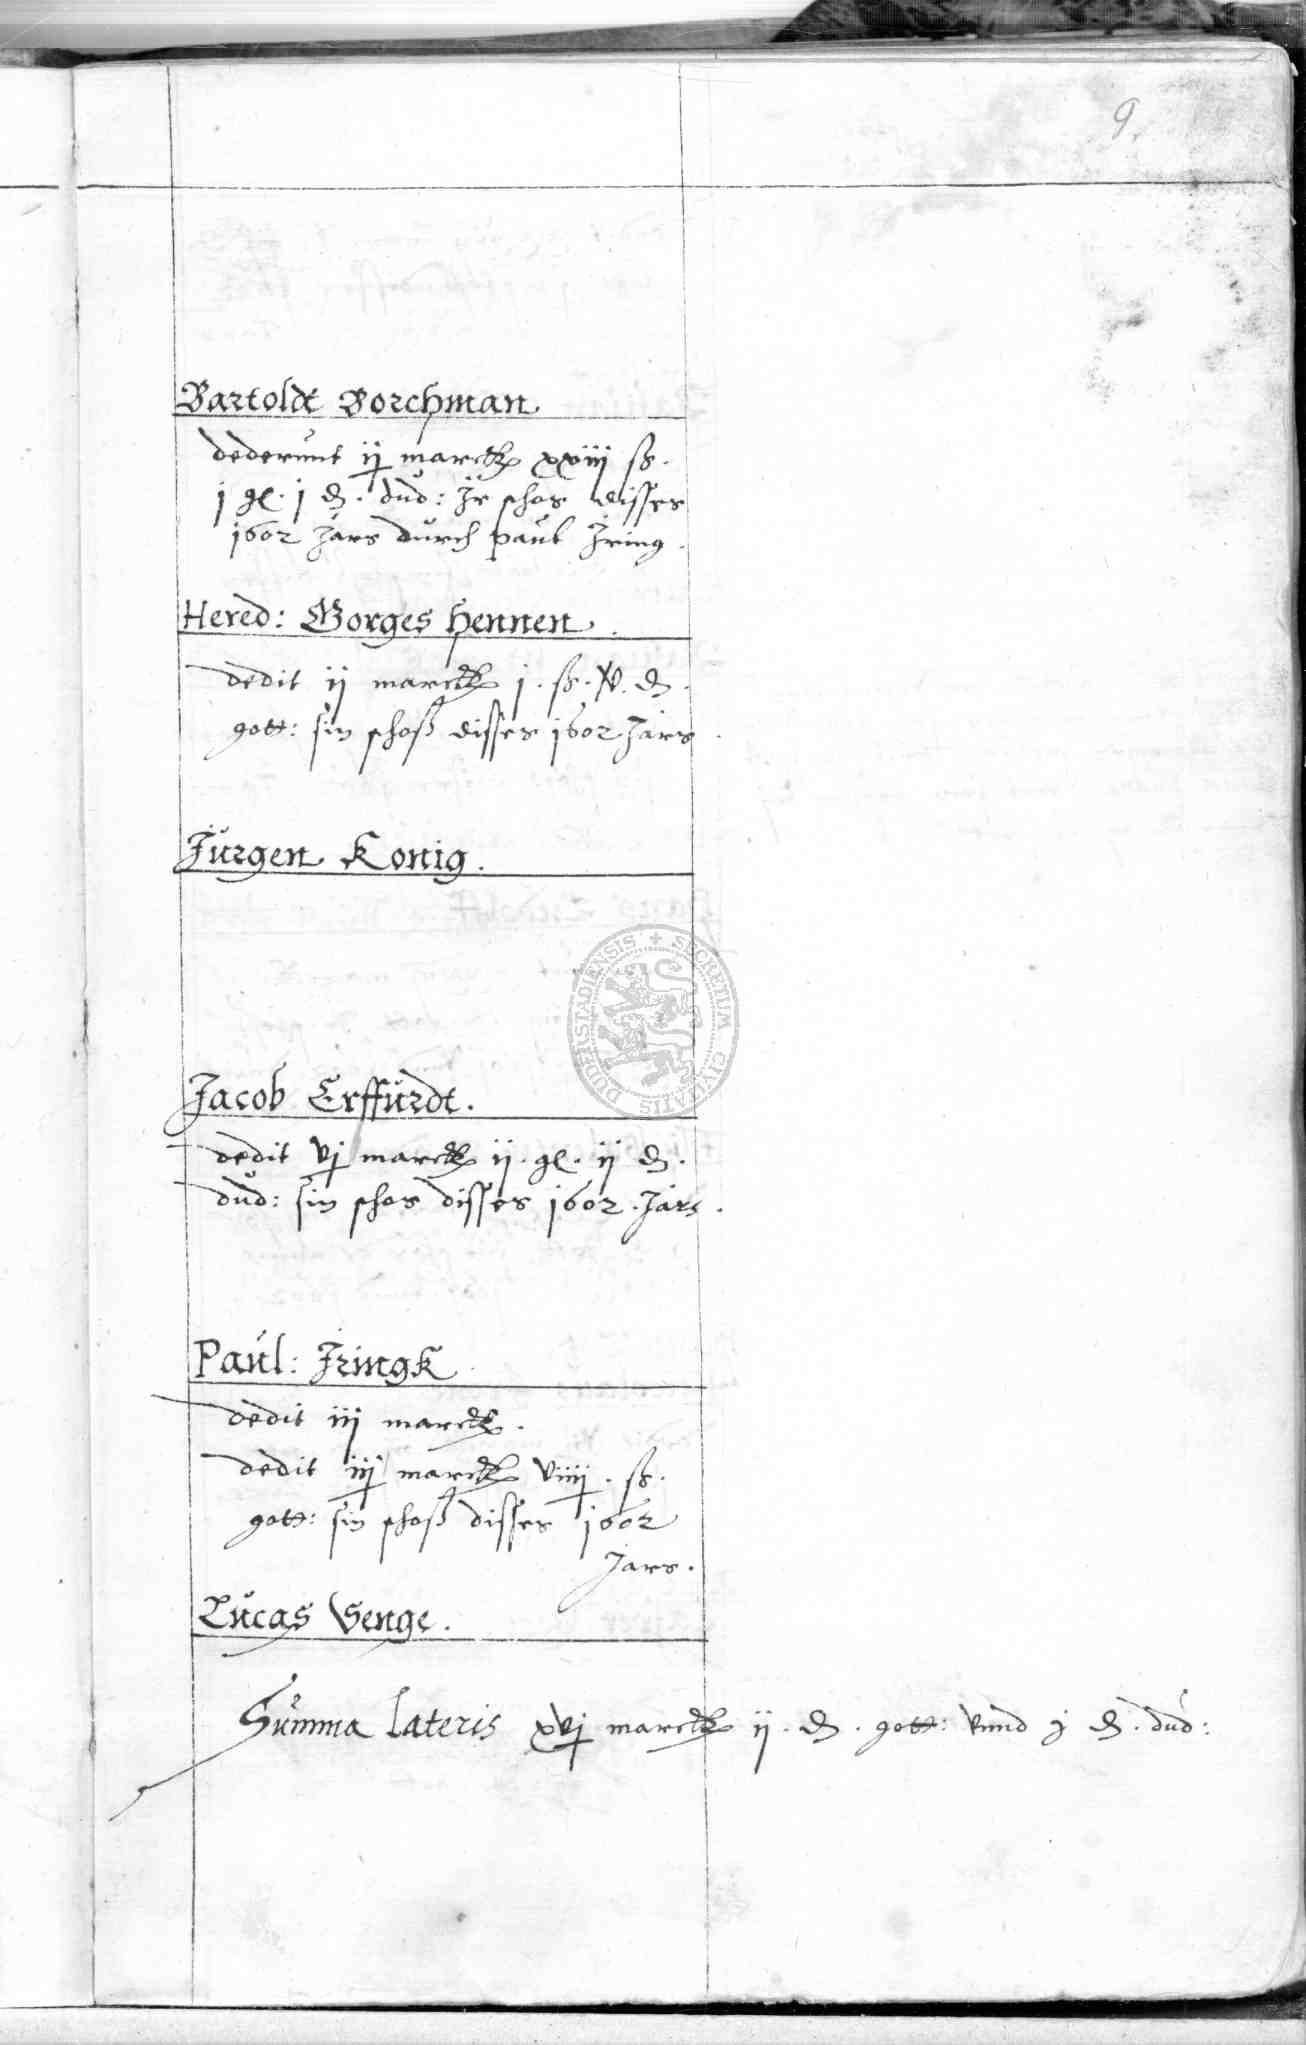 9
Bartoldt Borchman
dederunt ij marck xxiiij ß.
j gl. j d. dud: Jr schos disses
1602 Jars durch Paul Jring
Hered: Gorges Hennen
dedit ij marck j. ß. v. d.
gott: sin schoß disses 1602 Jars
Jurgen Konig.
Jacob Erffurdt.
dedit vj marck ij. gl. ij d.
dud: sin schos disses 1602. Jars.
Paul: Jringk
dedit iij marck.
dedit iij marck viiij. ß.
gott: sin schoß disses 1602
Jars.
Lucas Senge.
Summa lateris xvj marck ij. d. gott: vnnd j d. dud:
SECRETUM CIVITATIS DUDERSTADIENSIS